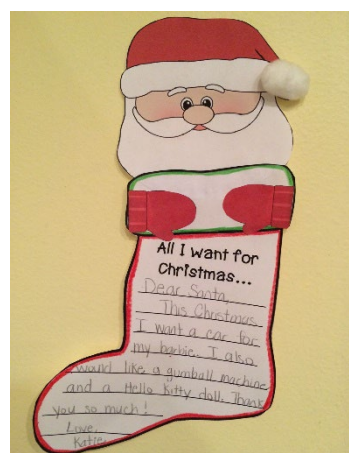 All I want for
Christmas...
Dear Santa,
This Christmas
I want a car for
my barbie. I also
would like a gumball machine
and a Hello Kitty doll. Thank
you so much!
Love,
Katie